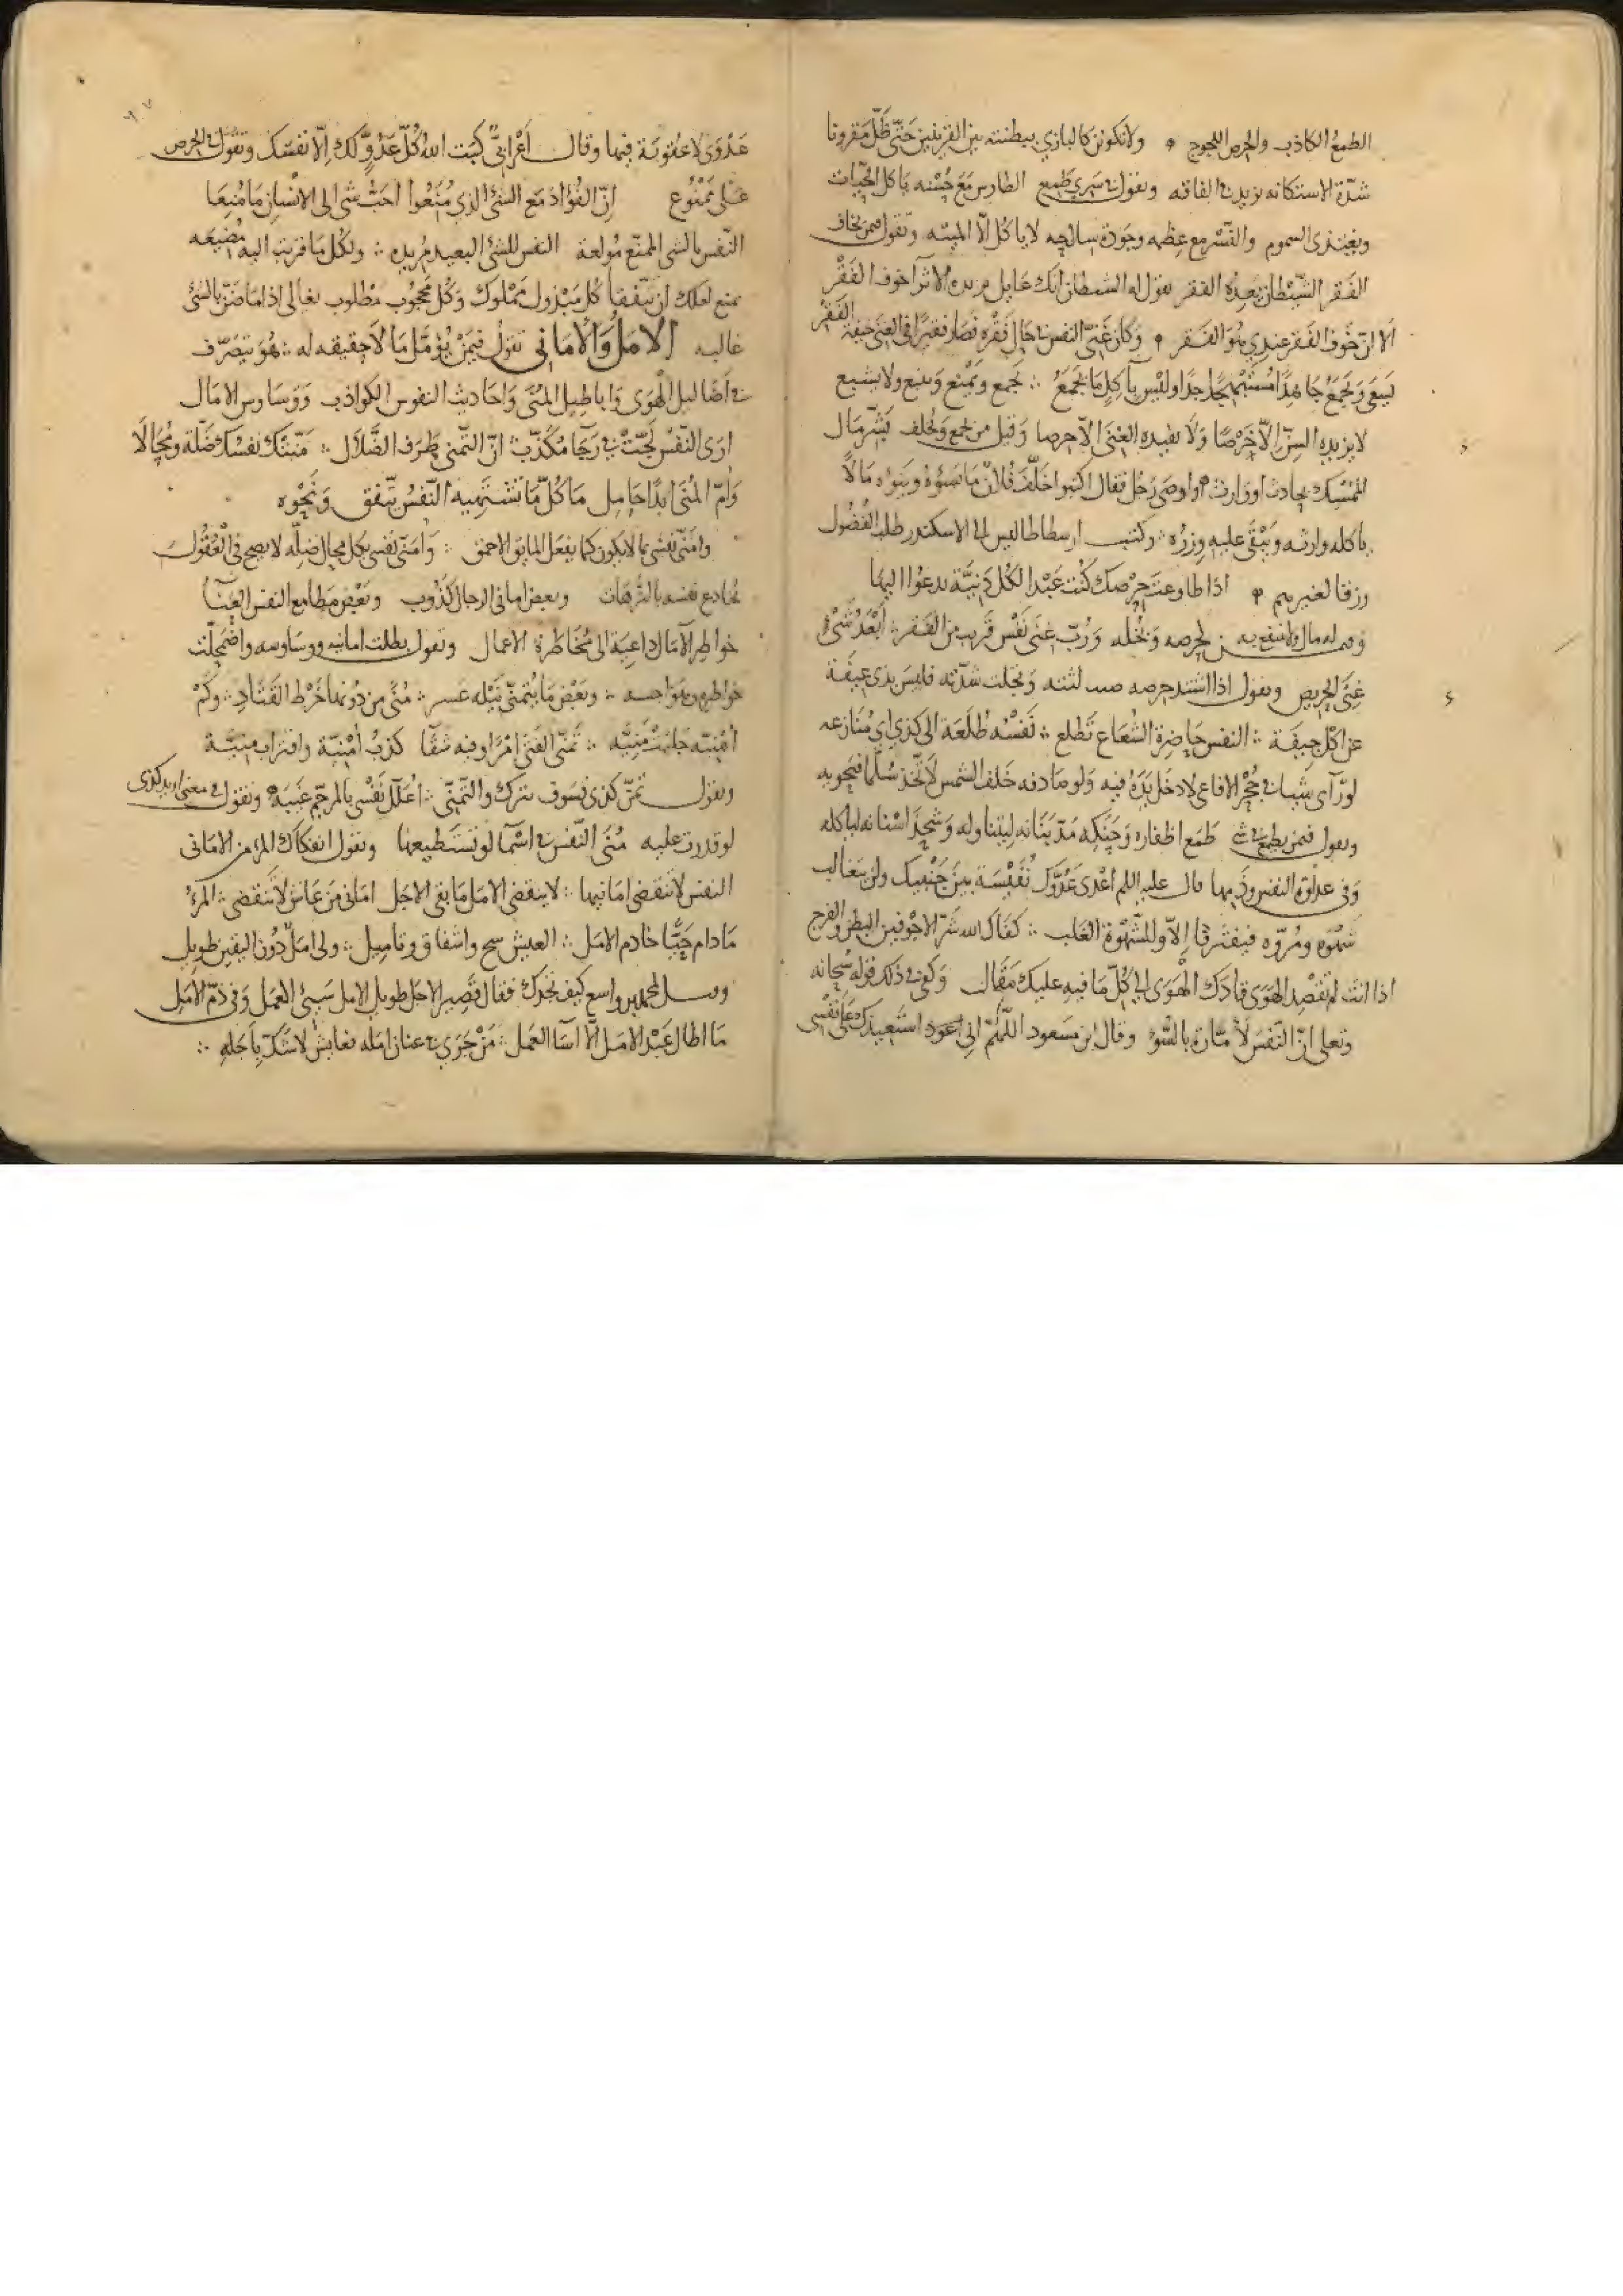 الطمع الكاذب والحرص اللجوج ولا تكونن كالبازي ببطنته بين القرينين حتى ظل مقرونا
شدة الاستكانه تزيد في الفاقه وتقول في سري طمع الطاوس مع حسنه ياكل الحيات
ويغتذي السموم والنسر مع عظمه وجودة سلاحه لا ياكل الا الميته وتقول فيمن يخاف
الفقر الشيطان يعده الفقر يقول له الشيطان انك عايل خوف الفقر
الا ان خوف الفقر عندي هو الفقر وكان غني النفس في حال فقره فصار فقيرا في الغنى خيفة الفقر
يسعى ويجمع جاهدا مستهترا جدا وليس بآكل ما يجمع يجمع ويمنع ولا يشبع
لا يزيده السن الا حرصا ولا يفيده الغنى الا حرصا وقيل من يجمع ويخلف بشر مال
الممسك بحادث او وارث واوصى رجل فقال اكتبوا خلف فلان ما يسوؤه وينوءه مالا
ياكله وارثه ويبقى عليه وزره وكتب ارسطاطاليس الى الاسكندر طلب الفضول
رزقا لغيرهم اذا طاوعت حرصك كنت عبدا لكل دنية تدعوا اليها
له مال ولا ينتفع به لحرصه وبخله ورب غنى نفس قريب من الفقر ابعد شيء
غنى الحريص وتقول اذا اشتد حرصه لثته وتجلت شدته فليس بذي عفة
عن اكل جيفة النفس حاضرة الشعاع تطلع نفسه طلعة الى كذي اي منازعه
لو رآى شيا في جحر الافاعي لادخل يده فيه ولو صادفه خلف الشمس لاتخذ سلما فيحويه
وتقول فيمن يطمع في شي طمع اظفاره وحنكه مد بنانه ليتناوله وشحذ اسنانه لياكله
وفي عداوة النفس وذمها قال عليه السلم اعدى عدوك نفيسة بين جنبيك ولن يتغالب
شهوه ومروه فيفترقا الا وللشهوة الغلب كفاك الله شر الاجوفين البطن والفرج
اذا انت لم تقصد الهوى قادك الهوى الى كل ما فيه عليك مقال وكفى في ذلك قوله سبحانه
وتعلى ان النفس لامارة بالسوء وقال ابن مسعود اللهم اني اعوذ استعيذك على نفسي
عدوى لا عقوبة فيها وقال اعرابي كبت الله كل عدو لك الا نفسك وتقول في الحرص
على ممنوع ان الفؤاد مع الشيء الذي منعوا احب شي الى الانسان ما منعا
النفس بالشي الممنع مولعة النفس للشيء البعيد مريده ولكل ما قربت اليه مضيعه
تمنع لعلك ان تنفقا كل مبذول مملوك وكل محجوب مطلوب يغالى اذا ما ضن بالشيء
غالبه الامل والاماني تقول فيمن يؤمل ما لا حقيقه له هو يتصرف
في اضاليل الهوى واباطيل المنى واحاديث النفوس الكواذب ووساوس الامال
ارى النفس لجت في رجا مكذب ان التمني طرف الضلال منتك نفسك ضلة ومحالا
وام المنى ابدا حامل ما كل ما تشتهيه النفس يتفق ونحوه
وامني نفسي بما لا يكون كما يفعل المايق الاحمق وامني نفسي بكل محال ضلة لا يصح في العقول
تخادع نفسه بالترهات وبعض اماني الرجال كذوب وبعض مطامع النفس العنا
خواطر الآمال داعية الى مخاطرة الاعمال وتقول بطلت امانيه ووساوسه واضمحلت
خواطره وهواجسه وبعض ما يتمنى نيله عسر منى من دونها خرط القتاد وكم
امنية جلبت منية تمنى الفتى امرا وفيه شفا كذب امنية واقتراب منية
وتقول تمن كذي فسوف تترك والتمني اعلل نفسي بالمرجم غيبه وتقول في معنى اريد كذى
لو قدرت عليه منى النفس في اسما لو تستطيعها وتقول انفكاك المرء من الاماني
النفس لا تنقضي امانيها لا ينقضي الامل ما بقى الاجل املي من عاش لا تنقضي المرء
ما دام حيا خادم الامل العيش شح واشفاق وتاميل ولي امل دون اليقين طويل
لمحمد بن واسع كيف تجدك فقال قصير الاجل طويل الامل سيئ العمل وفي ذم الامل
ما اطال عبد الامل الا اسآ العمل من جرى في عنان امله لا شك باجله